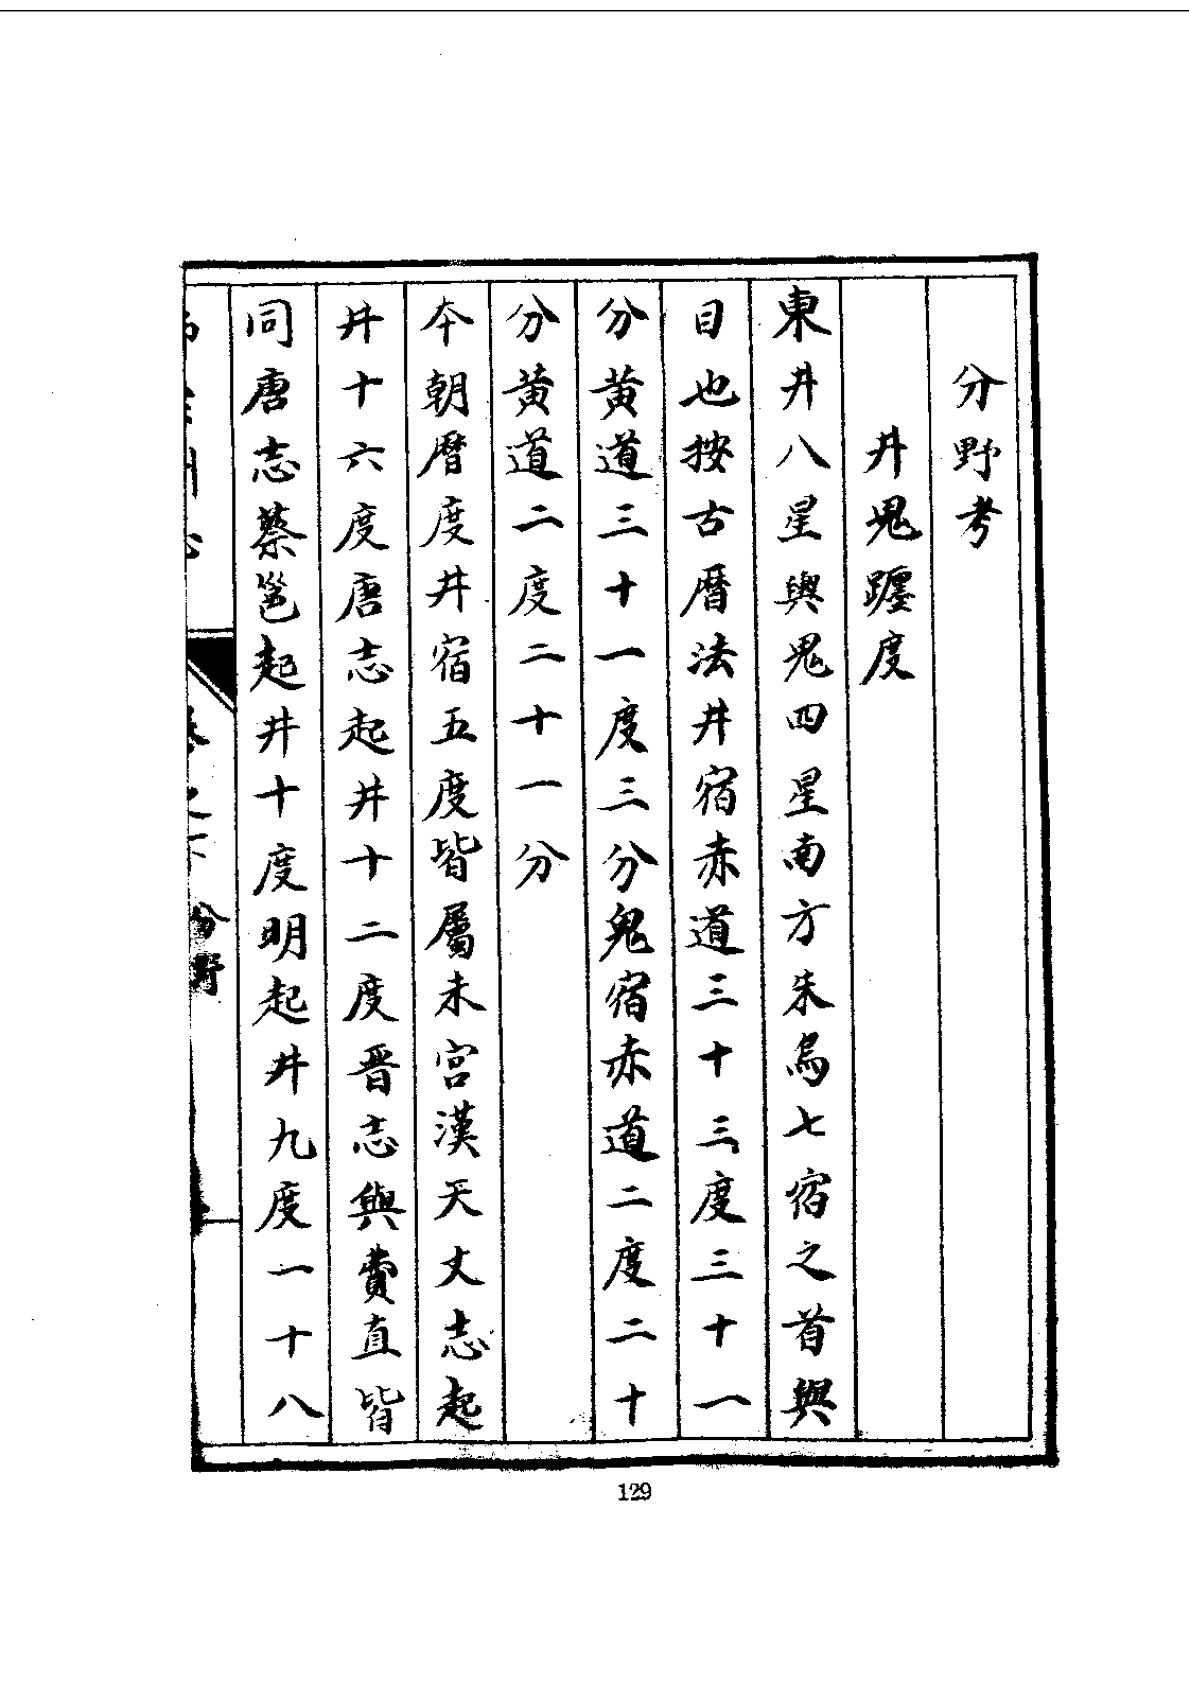 分野考
井鬼躔度
東井八星輿鬼四星南方朱鳥七宿之首與
目也按古曆法井宿赤道三十三度三十一
分黃道三十一度三分鬼宿赤道二度二十
分黃道二度二十一分
本朝曆度井宿五度皆屬未宮漢天文志起
井十六度唐志起井十二度晋志與費直皆
同唐志蔡邕起井十度明起井九度一十八
卷之 分野
129